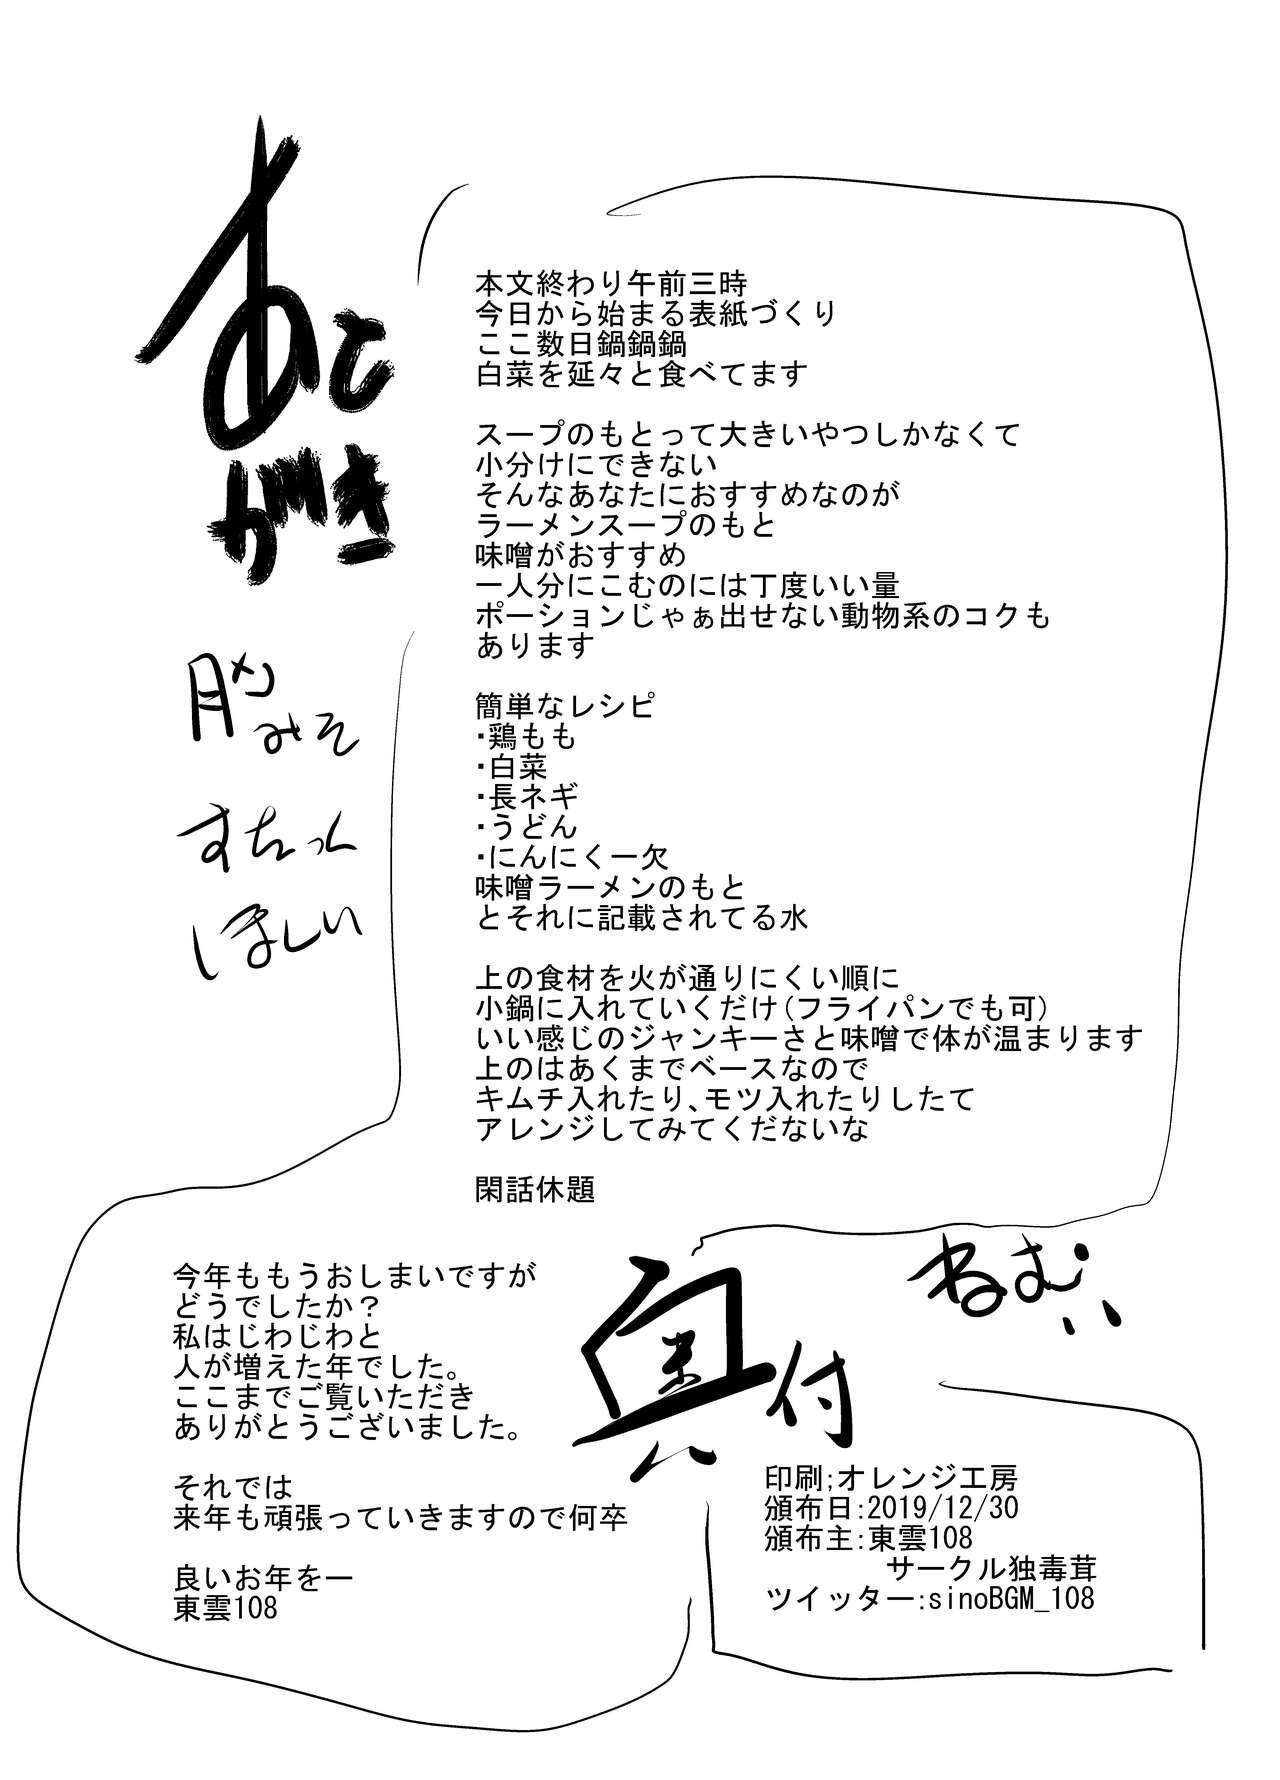 あと
がき
本文終わり午前三時
今日から始まる表紙づくり
ここ数日鍋鍋鍋
白菜を延々と食べてます
スープのもとって大きいやつしかなくて
小分けにできない
そんなあなたにおすすめなのが
ラーメンスープのもと
味噌がおすすめ
一人分にこむのには丁度いい量
ポーションじゃぁ出せない動物系のコクも
あります
簡単なレシピ
・鶏もも
・白菜
・長ネギ
・うどん
・にんにく一欠
味噌ラーメンのもと
とそれに記載されてる水
上の食材を火が通りにくい順に
小鍋に入れていくだけ(フライパンでも可)
いい感じのジャンキーさと味噌で体が温まります
上のはあくまでベースなので
キムチ入れたり、モツ入れたりしたて
アレンジしてみてくだないな
閑話休題
みそ
すたっく
ほしい
今年ももうおしまいですが
どうでしたか?
私はじわじわと
人が増えた年でした。
ここまでご覧いただき
ありがとうございました。
それでは
来年も頑張っていきますので何卒
良いお年をー
東雲108
ねむい
奥付
印刷;オレンジ工房
頒布日:2019/12/30
頒布主:東雲108
サークル独毒茸
ツイッター:sinoBGM_108